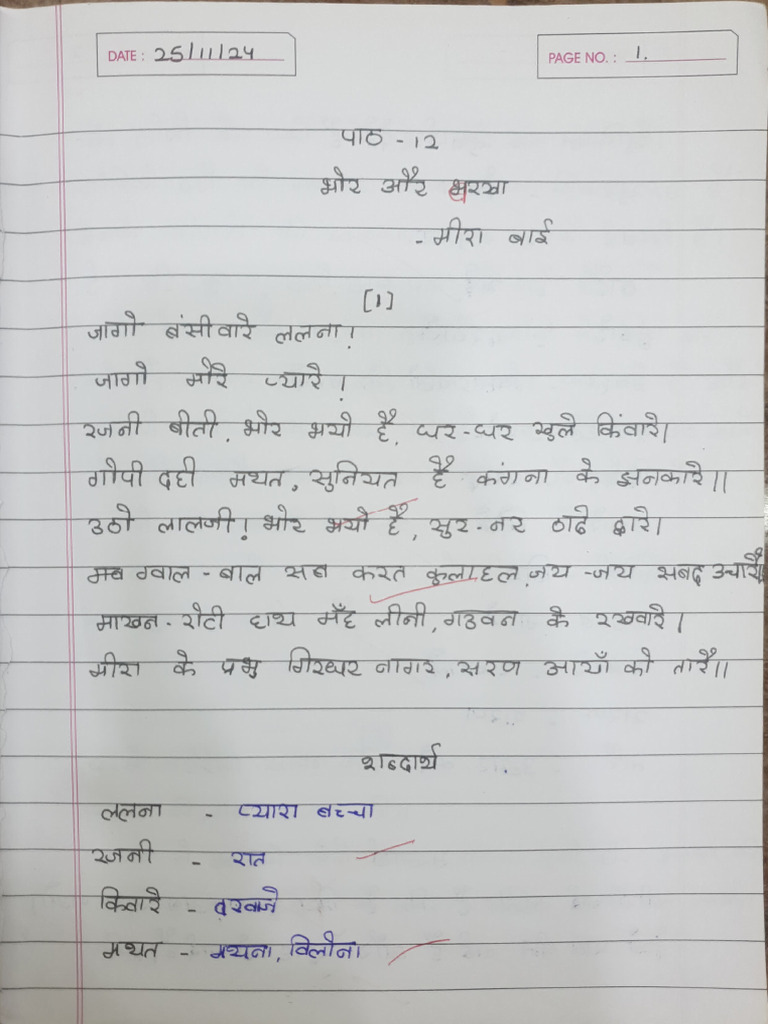 DATE : 25/11/24
PAGE NO. : 1.
पाठ - 12
भोर और बरखा
- मीरा बाई
[1]
जागो बंसीवारे ललना!
जागो मोरे प्यारे!
रजनी बीती, भोर भयो है, घर-घर खुले किंवारे।
गोपी दही मथत, सुनियत है कंगना के झनकारे।।
उठो लालजी! भोर भयो है, सुर-नर ठाढ़े द्वारे।
ग्वाल-बाल सब करत कुलाहल, जय-जय सबद उचारै
माखन-रोटी हाथ मँह लीनी, गउवन के रखवारे।
मीरा के प्रभु गिरधर नागर, सरण आयाँ को तारै।।
शब्दार्थ
ललना - प्यारा बच्चा
रजनी - रात
किवारे - दरवाजे
मथत - मथना, विलोना